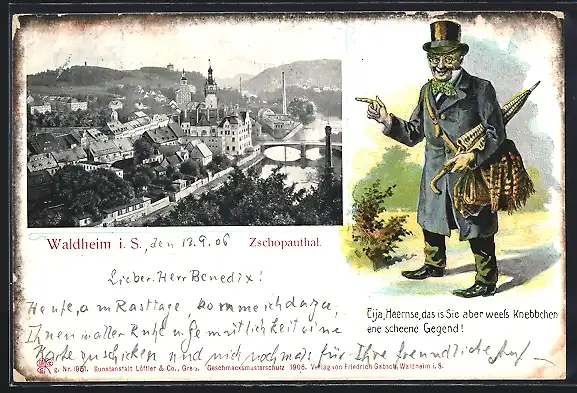 Waldheim i. S., den 13.9.06 Zschopauthal.
Eija, Heernse, das is Sie aber weeß Knebbchen
ene scheene Gegend!
Lieber Herr Benedix!
Heute, am Rasttage, komme ich dazu,
Ihnen in aller Ruhe u. gemütlichkeit eine
Karte zu schicken und mich nochmals für Ihre freundliche
g. Nr. 1951. Kunstanstalt Löffler & Co., Greiz. Geschmacksmusterschutz 1906. Verlag von Friedrich Gabsch, Waldheim i. S.